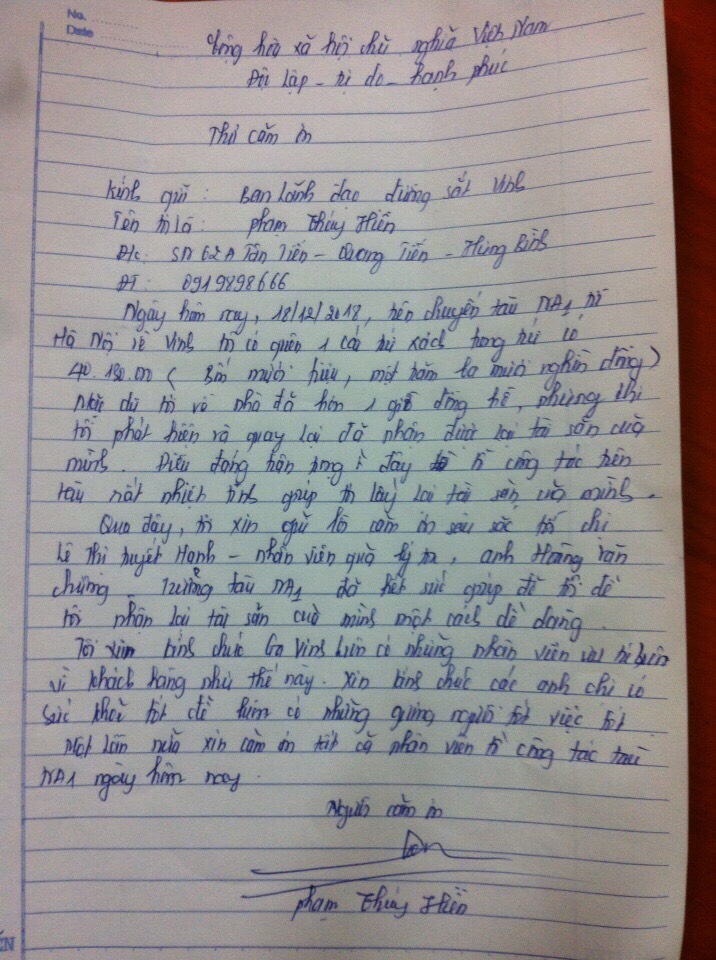 No.
Date
Cộng hòa xã hội chủ nghĩa Việt Nam
Độc lập - tự do - hạnh phúc
Thư cảm ơn
Kính gửi : Ban lãnh đạo đường sắt Vinh
Tên tôi là : Phạm Thúy Hiền
Đ/c: SN 62A Tân Tiến - Quang Tiến - Hưng Bình
ĐT : 0919898666
Ngày hôm nay, 18/12/2018, trên chuyến tàu NA1 từ
Hà Nội về Vinh tôi có quên 1 cái túi xách trong túi có
40.130.000 ( Bốn mươi triệu, một trăm ba mươi nghìn đồng )
Mặc dù tôi về nhà đã hơn 1 giờ đồng hồ, nhưng khi
tôi phát hiện và quay lại đã nhận được lại tài sản của
mình. Điều đáng trân trọng ở đây tổ công tác trên
tàu rất nhiệt tình giúp tôi lấy lại tài sản của mình.
Qua đây, tôi xin gửi lời cảm ơn sâu sắc tới chị
Lê Thị Tuyết Hạnh - nhân viên quản lý toa, anh Hoàng Văn
Chung - Trưởng tàu NA1 đã hết sức giúp đỡ tôi để
tôi nhận lại tài sản của mình một cách dễ dàng.
Tôi xin kính chúc Ga Vinh luôn có những nhân viên
vì khách hàng như thế này. Xin kính chúc các anh chị có
sức khỏe tốt để luôn có những gương người tốt việc tốt.
Một lần nữa xin cảm ơn tất cả nhân viên tổ công tác tàu
NA1 ngày hôm nay.
Người cảm ơn
Phạm Thúy Hiền